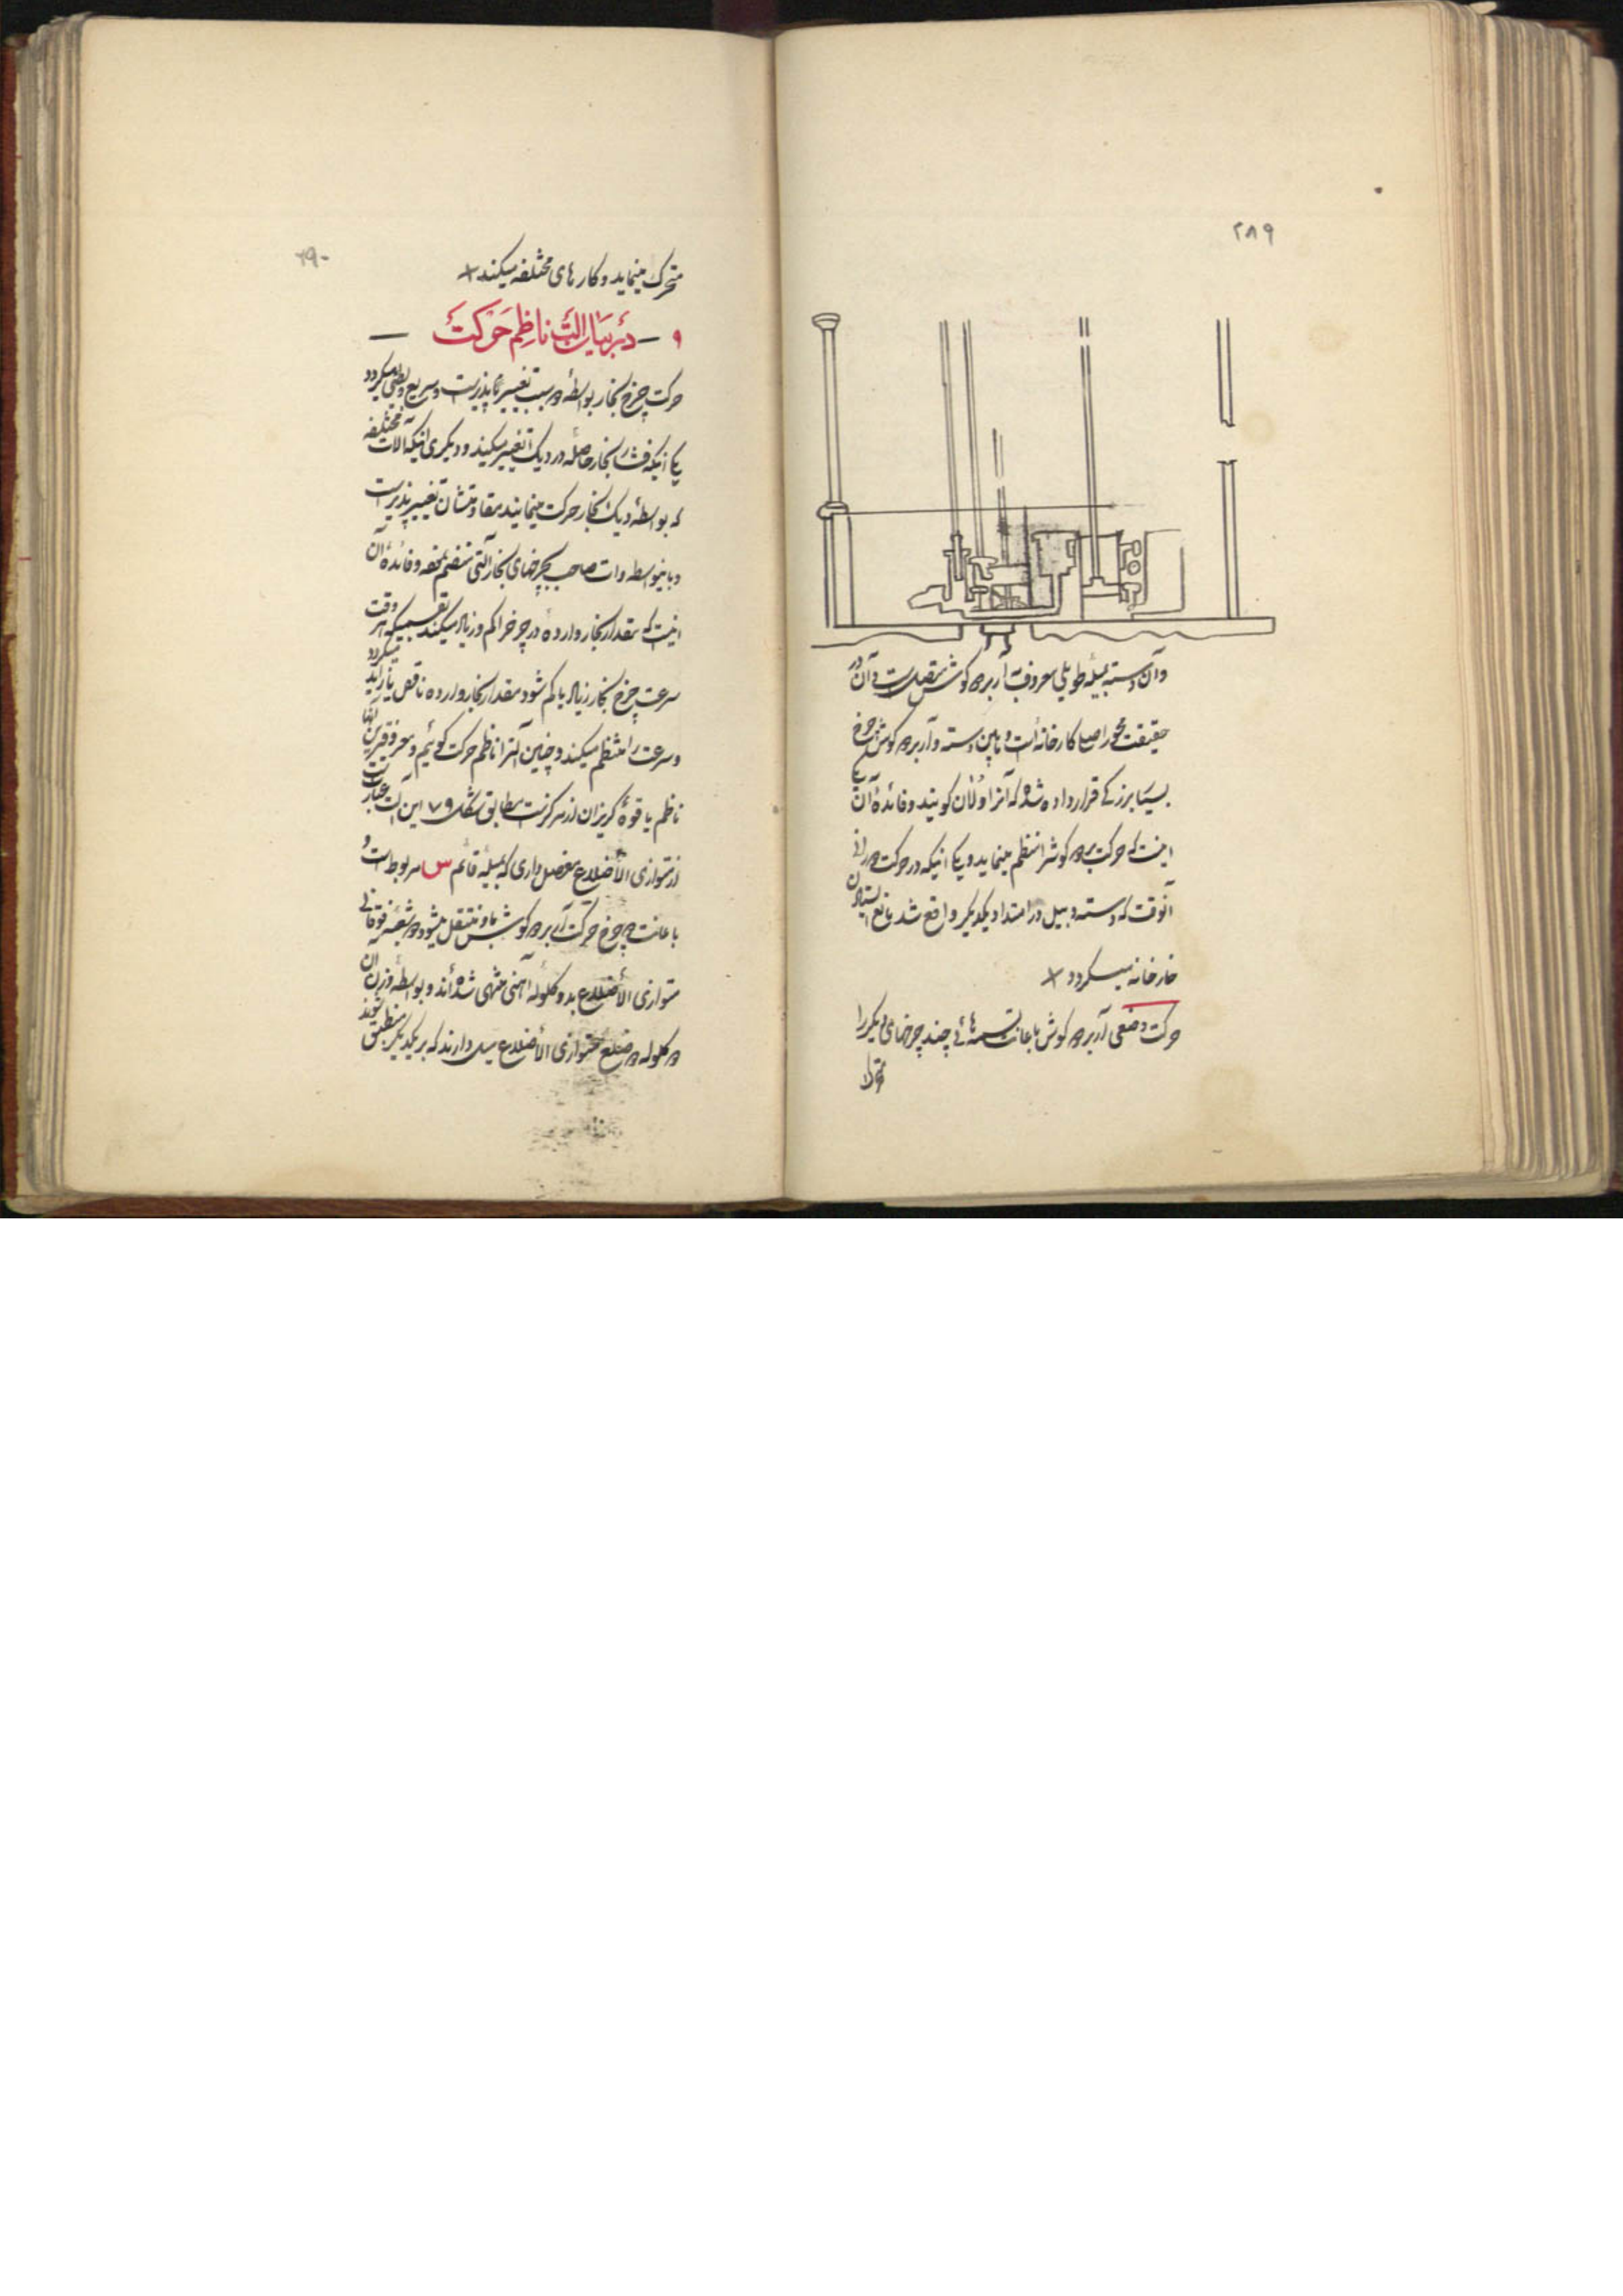 ۲۸۹
وآن دسته بمیلهٔ طویلی معروف بآربر دو کوش متصل است و آن در
حقیقت محور اصلی کارخانه است و مابین دسته و آربر دو کوش چرخ
بسیار بزرکی قرار داده شده که آنرا ولان کویند و فائدهٔ آن
اینست که حرکت بر دو کوش را منتظم مینماید و یکی اینکه در حرکت
آنوقت که دسته و بیل در امتداد یکدیکر واقع شد مانع ایستادن
کارخانه میکردد
حرکت وضعی آربر دو کوش باعانت تسمه‌هائی چند چرخهای دیکر را
متحرک
۲۹۰
متحرک مینماید و کارهای مختلفه میکند
۹ — در بیان آلت ناظم حرکت —
حرکت چرخ بخار بواسطهٔ دو سبب تغییر پذیر است و سریع و بطئی میکردد
یکی اینکه فشار بخار حاصله در دیک تغییر میکند و دیکری اینکه آلات مختلفه
که بواسطهٔ دیک بخار حرکت مینمایند مقاومتشان تغییر پذیر است
و باینواسطه وات صاحب بچرخهای بخار آلتی منضم نموده و فائدهٔ آن
اینست که مقدار بخار وارده در چرخ را کم و زیاد میکند بقسمیکه هر وقت
سرعت چرخ بخار زیاد یا کم شود مقدار بخار وارده ناقص یا زاید میکردد
و سرعت را منتظم میکند و چنین آلترا ناظم حرکت کوئیم و معروفترین آنها
ناظم با قوهٔ کریزان از مرکز است مطابق شکل ۷۹ این آلت عبارتست
از متوازی الأضلاع مفصل داری که بمیلهٔ قائم س مربوط است و
باعانت دو چرخ حرکت آربر دو کوش باو منتقل میشود و دو شعبهٔ فوقانی
متوازی الأضلاع بدو کلوله آهنی منتهی شده‌اند و بواسطهٔ وزن آن
دو کلوله دو ضلع متوازی الأضلاع میل دارند که بر یکدیکر منطبق شوند